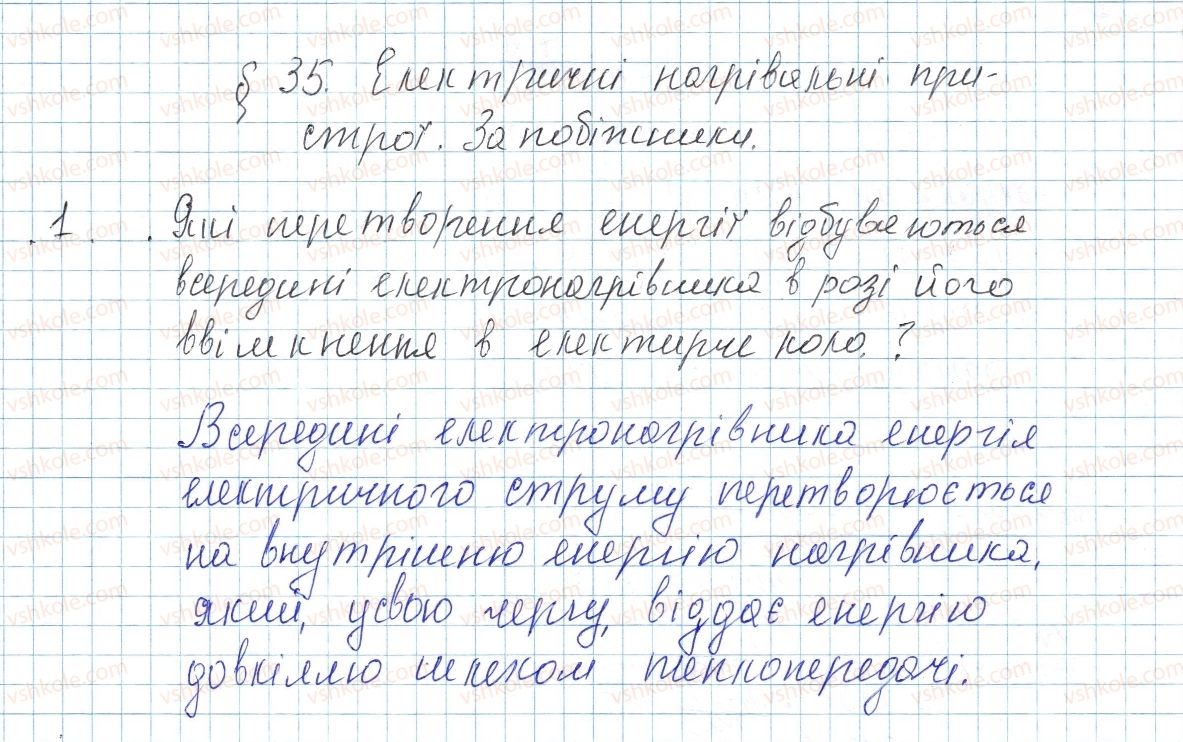 § 35. Електричні нагрівальні при-
строї. Запобіжники.
1. Які перетворення енергії відбуваються
всередині електронагрівника в розі його
ввімкнення в електирче коло?
Всередині електронагрівника енергія
електричного струму перетворюється
на внутрішню енергію нагрівника,
який, у свою чергу, віддає енергію
довкіллю шляхом теплопередачі.